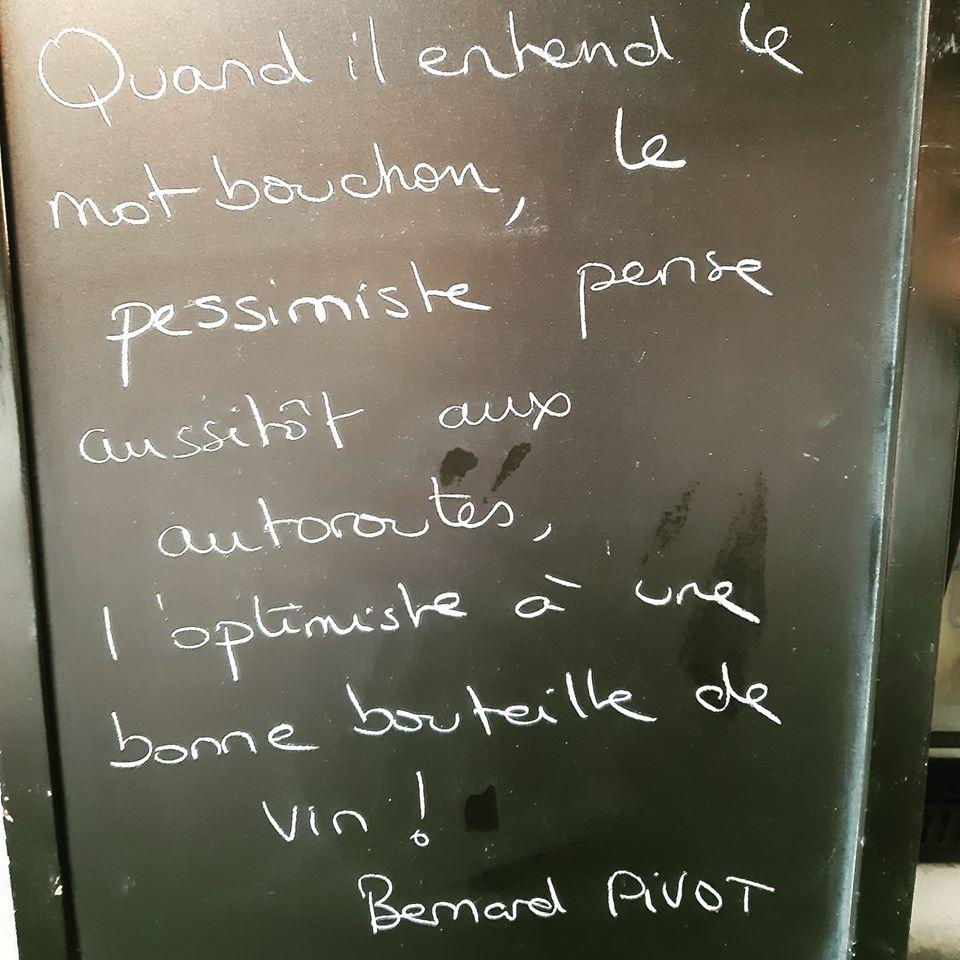 Quand il entend le
mot bouchon, le
pessimiste pense
aussitôt aux
autoroutes,
l'optimiste à une
bonne bouteille de
vin !
Bernard PIVOT